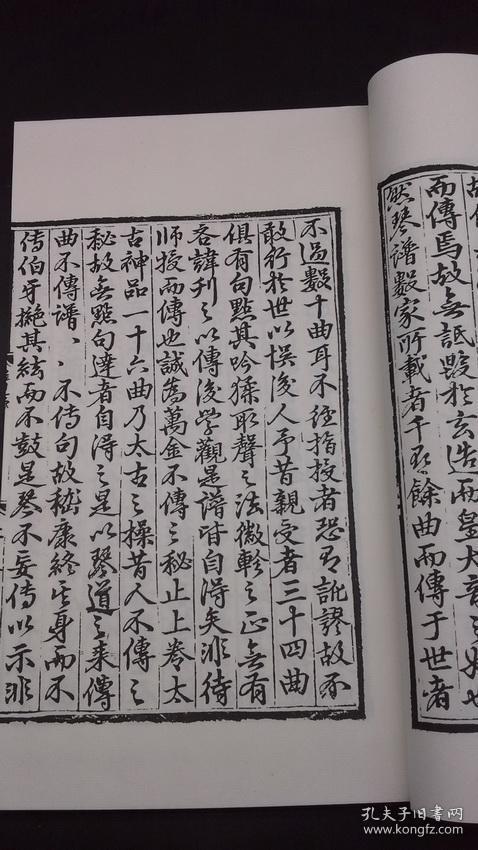 而傳焉故無詆毀於玄造而皇大音
然琴譜數家所載者千有餘曲而傳于世者
不過數十曲耳不經指授者恐有訛謬故不
敢行於世以悞後人予昔親受者三十四曲
俱有句點其吟猱取聲之法徽軫之正無有
吝諱刊之以傳後學觀是譜皆自得矣非待
師授而傳也誠為萬金不傳之秘止上卷太
古神品一十六曲乃太古之操昔人不傳之
秘故無點句達者自得之是以琴道之來傳
曲不傳譜、、不傳句故嵇康終其身而不
傳伯牙絶其絃而不鼓是琴不妄傳以示非
孔夫子旧书网
www.kongfz.com